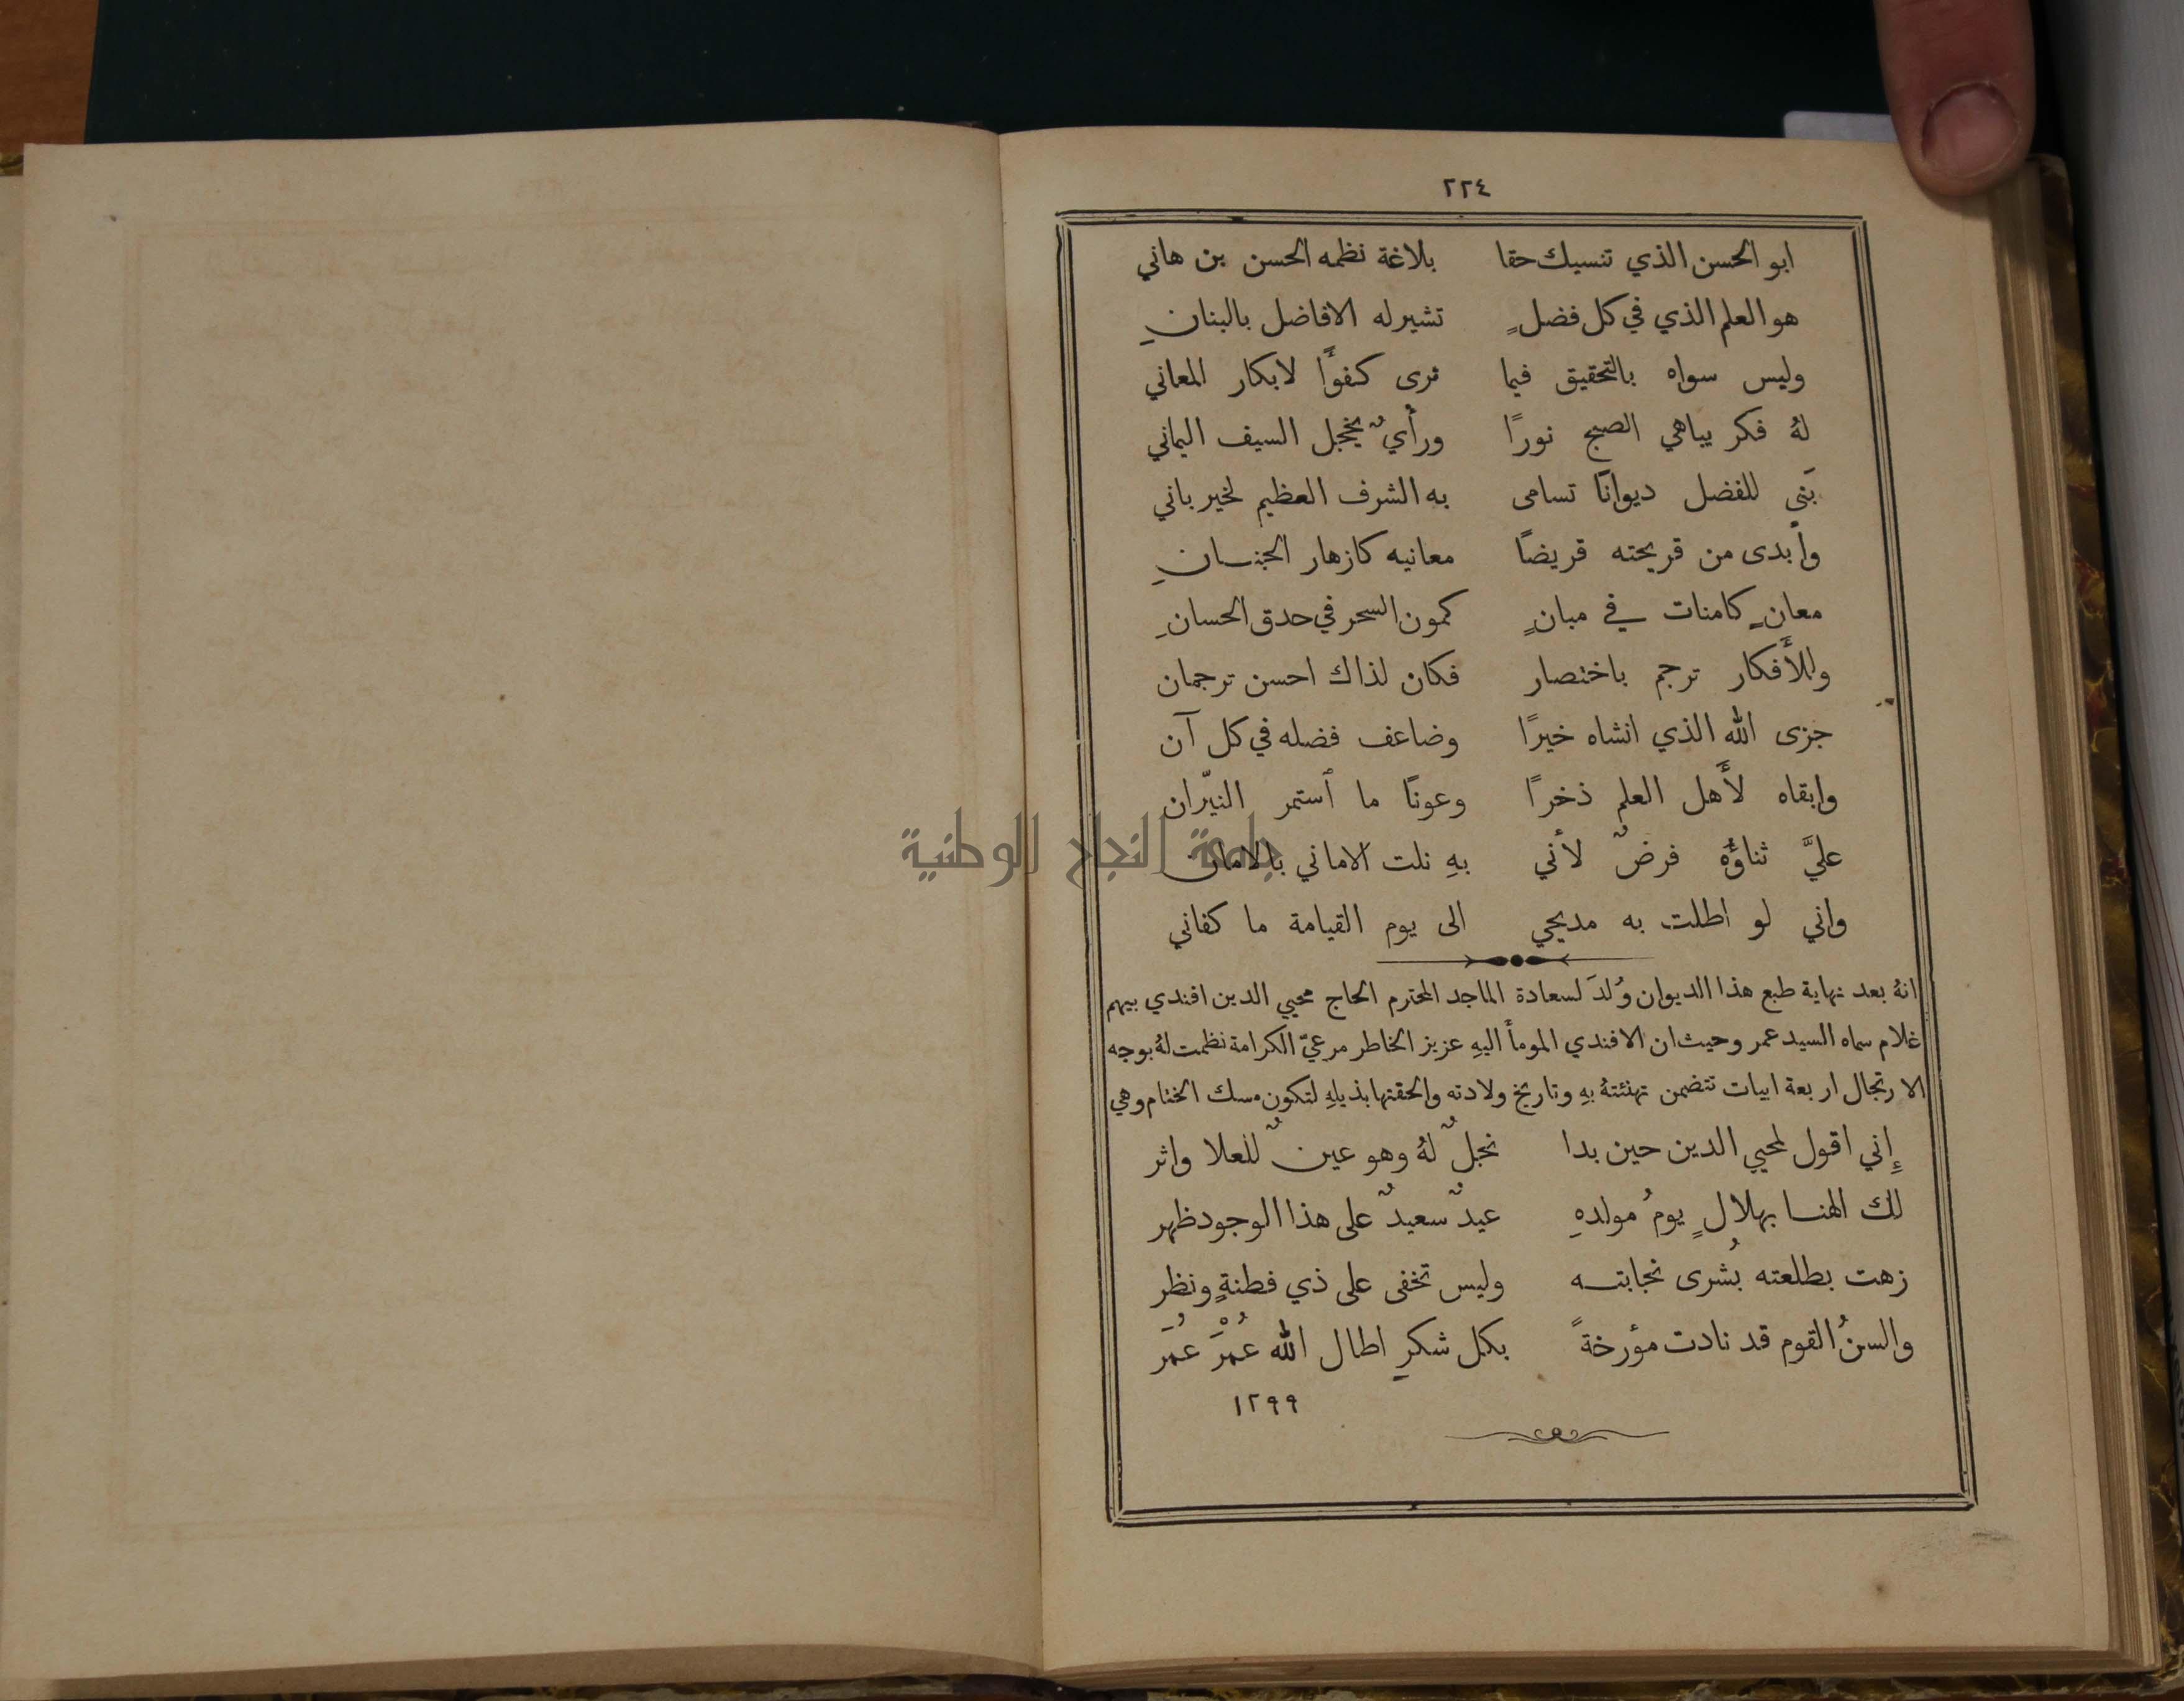 ٢٢٤
ابو الحسن الذي تنسيك حقا بلاغة نظمه الحسن بن هاني
هو العلم الذي في كل فضلٍ تشير له الافاضل بالبنانِ
وليس سواه بالتحقيق فيما ترى كفوًأ لابكار المعاني
لهُ فكر يباهي الصبح نورًا ورأيٌ يخجل السيف اليماني
بَنى للفضل ديوانًا تسامى به الشرف العظيم لخير باني
وأبدى من قريحته قريضًا معانيه كازهار الجنـانِ
معانٍ كامنات في مبانٍ كمون السحر في حدق الحسانِ
وللأَفكار ترجم باختصار فكان لذاك احسن ترجمان
جزى الله الذي انشاه خيرًا وضاعف فضله في كل آن
وابقاه لأَهل العلم ذخرًا وعونًا ما ٱستمر النيّران
عليَّ ثناؤُه فرضٌ لأني بهِ نلت الاماني بالامان
واني لو اطلت به مديحي الى يوم القيامة ما كفاني
انهُ بعد نهاية طبع هذا الديوان وُلدَ لسعادة الماجد المحترم الحاج محيي الدين افندي بيهم
غلام سماه السيد عمر وحيث ان الافندي المومأ اليهِ عزيز الخاطر مرعيّ الكرامة نظمت لهُ بوجه
الارتجال اربعة ابيات تتضمن تهنئتهُ بهِ وتاريخ ولادته والحقتها بذيلهِ لتكون مسك الختام وهي
إِني اقول لمحيي الدين حين بدا نجلٌ لهُ وهو عينٌ للعلا واثر
لك الهنـا بهلالٍ يومُ مولدهِ عيدٌ سعيدٌ على هذا الوجود ظهر
زهت بطلعته بُشرى نجابتـه وليس تخفى على ذي فطنةٍ ونظر
والسنُ القوم قد نادت مؤرخةً بكل شكرٍ اطال الله عُمْرَ عُمَر
١٢٩٩
جامعة النجاح الوطنية